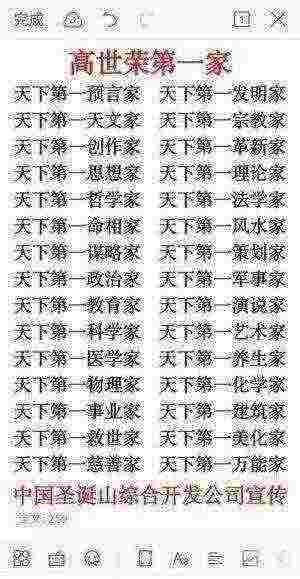 完成
高世荣第一家
天下第一预言家 天下第一发明家
天下第一天文家 天下第一宗教家
天下第一创作家 天下第一革新家
天下第一思想家 天下第一理论家
天下第一哲学家 天下第一法学家
天下第一命相家 天下第一风水家
天下第一谋略家 天下第一策划家
天下第一政治家 天下第一军事家
天下第一教育家 天下第一演说家
天下第一科学家 天下第一艺术家
天下第一医学家 天下第一养生家
天下第一物理家 天下第一化学家
天下第一事业家 天下第一建筑家
天下第一救世家 天下第一美化家
天下第一慈善家 天下第一万能家
中国圣诞山综合开发公司宣传